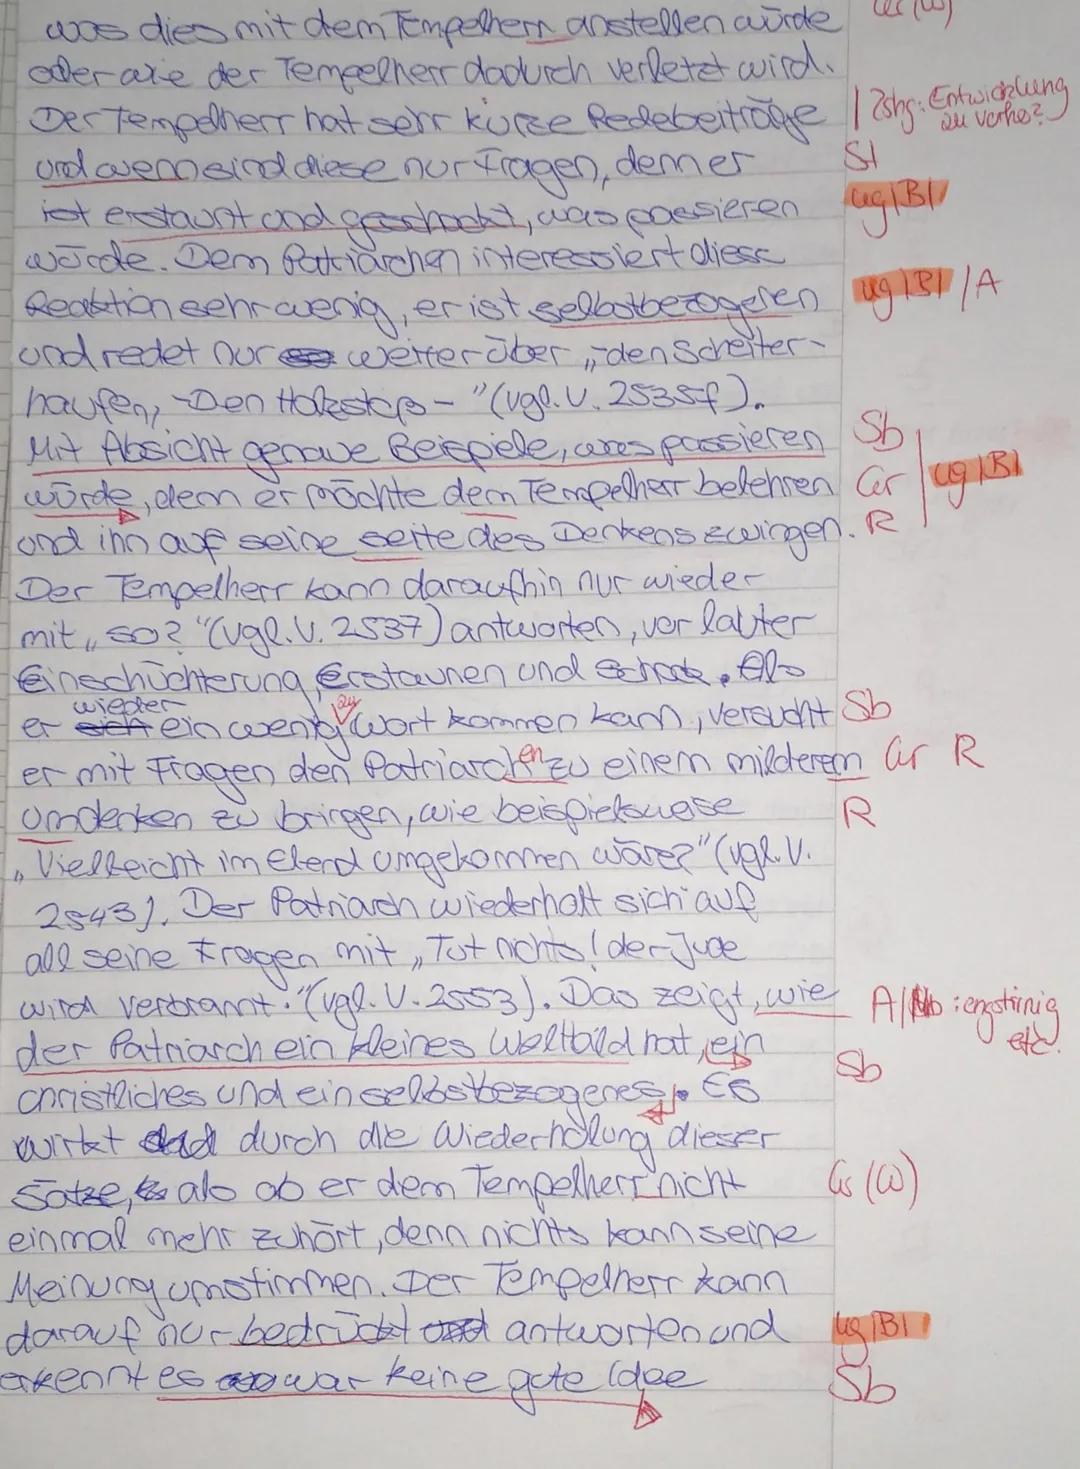 was dies mit dem Tempelherrn anstellen würde
oder wie der Tempelherr dadurch verletzt wird.
Der Tempelherr hat sehr kurze Redebeiträge
| Zshg.: Entwicklung
zu vorher?
und wenn sind diese nur Fragen, denn er
St
ist erstaunt und geschockt, was passieren
ug|B|
würde. Dem Patriarchen interessiert diese
Reaktion sehr wenig, er ist selbstbezogenen
ug|B|/A
und redet nur weiter über „-den Scheiter-
haufen, -Den Holzstoß-"(vgl. V. 2535f).
Mit Absicht genaue Beispiele, was passieren
Sb
würde, denn er möchte dem Tempelherr belehren
Gr
ug|B|
und ihn auf seine seite des Denkens zwingen.
R
Der Tempelherr kann daraufhin nur wieder
mit „so?"(vgl. V. 2537) antworten, vor lauter
Einschüchterung, Erstaunen und Schock. Als
wieder
er ein wenig zu Wort kommen kann, versucht
Sb
er mit Fragen den Patriarchen zu einem milderem
Gr R
umdenken zu bringen, wie beispielsweise
R
„Vielleicht im Elend umgekommen wäre?"(vgl. V.
2543). Der Patriarch wiederholt sich auf
all seine Fragen mit „Tut nichts! der Jude
wird verbrannt."(vgl. V. 2553). Das zeigt, wie
A/ : engstirnig
etc.
der Patriarch ein kleines Weltbild hat, ein
Sb
christliches und ein selbstbezogenes. Es
wirkt durch die Wiederholung dieser
Sätze, als ob er dem Tempelherr nicht
Gr (W)
einmal mehr zuhört, denn nichts kann seine
Meinung umstimmen. Der Tempelherr kann
darauf nur bedrückt antworten und
ug|B|
erkennt es war keine gute Idee
Sb